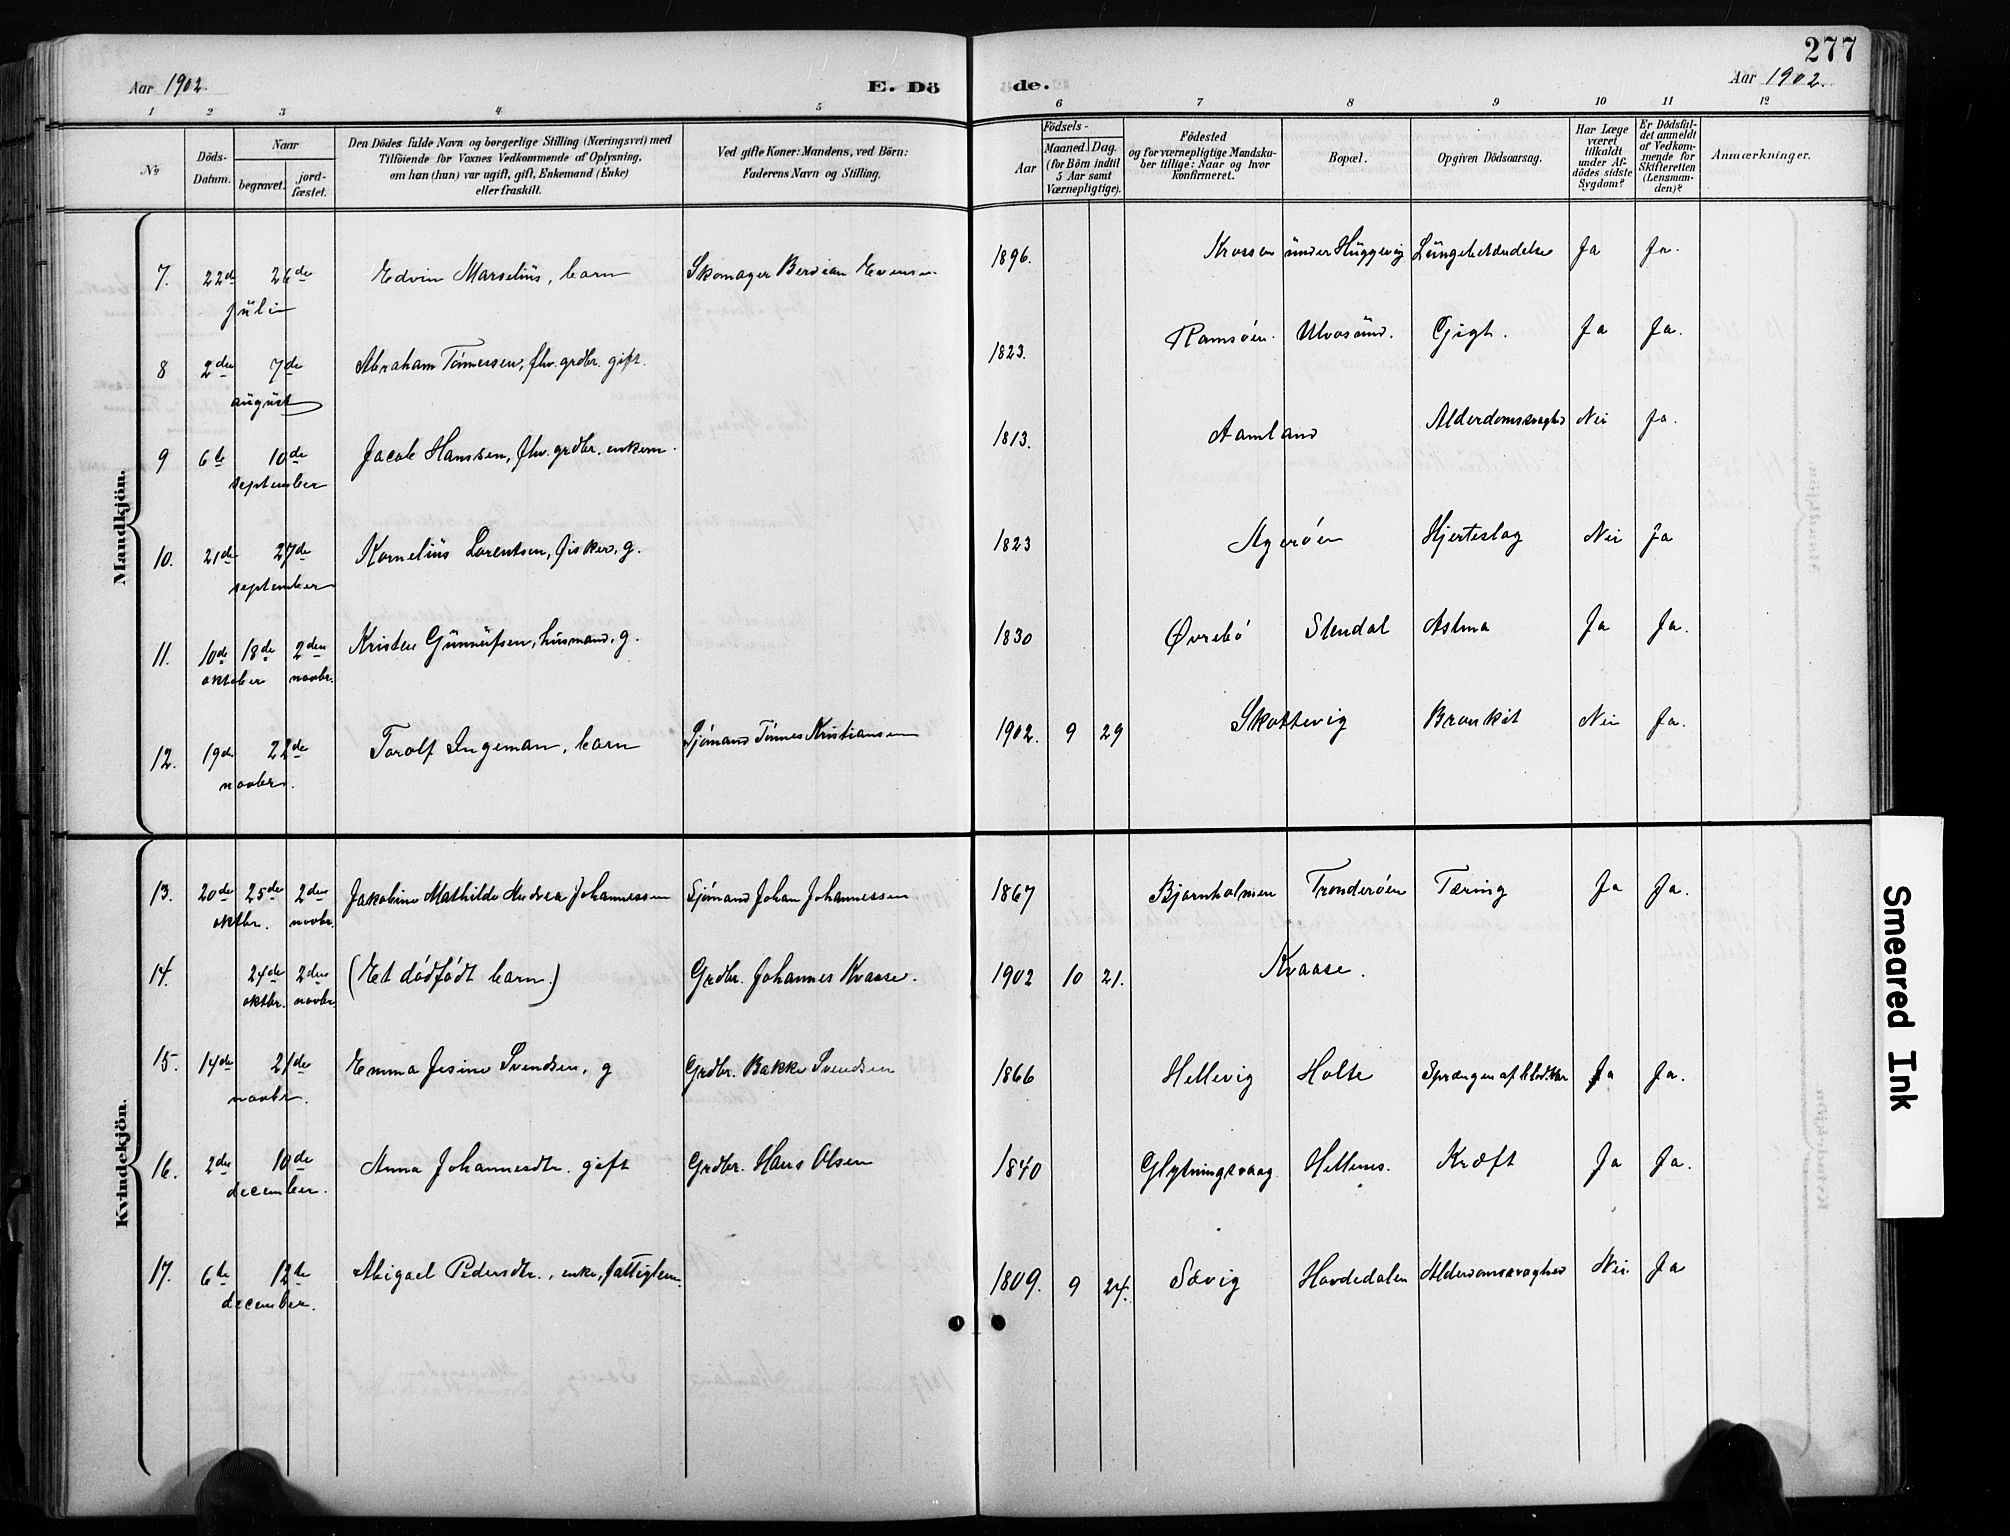 277
Aar 1902.
E. Dö
de.
Aar 1902.
1 2 3 4 5 6 7 8 9 10 11 12
No
Döds-
Datum.
Naar
begravet.
jord-
fæstet.
Den Dödes fulde Navn og borgerlige Stilling (Næringsvei) med
Tilföiende for Voxnes Vedkommende af Oplysning,
om han (hun) var ugift, gift, Enkemand (Enke)
eller fraskilt.
Ved gifte Koner: Mandens, ved Börn:
Faderens Navn og Stilling.
Födsels-
Aar
Maaned. Dag.
(for Börn indtil
5 Aar samt
Værnepligtige).
Födested
og for værnepligtige Mandska-
ber tillige: Naar og hvor
konfirmeret.
Bopæl.
Opgiven Dödsaarsag.
Har Læge
været
tilkaldt
under Af-
dödes sidste
Sygdom?
Er Dödsfal-
det anmeldt
af Vedkom-
mende for
Skifteretten
(Lensman-
den)?
Anmærkninger.
Mandkjön.
7. 22de 26de Edvin Marselius, barn Skomager Berdsan Evensen 1896. Krossen under Huggevig Lungebetændelse Ja Ja.
juli
8 2den 7de Abraham Tönnessen, fhv. grdbr. gift. 1823. Ramsöen. Ulvosund. Gigt. Ja Ja.
august
9 6te 10de Jacob Hanssen, fhv. grdbr. enkem. 1813. Aamland Alderdomssvaghed Nei Ja.
september
10. 21de 27de Kornelius Lorentsen, fisker, g. 1823 Agerøen Hjerteslag Nei Ja
september
11. 10de 18de 2den Kristen Gunnufsen, husmand, g. 1830 Øvrebö Stendal Astma Ja Ja.
oktober novbr.
12. 19de 22de Torolf Ingeman, barn Sjömand Tönnes Kristiansen 1902. 9 29 Skottevig Bronkit Nei Ja.
novbr.
Kvindekjön.
13. 20de 25de 2den Jakobine Mathilde Andrea Johannessen Sjömand Johan Johannessen 1867 Bjornholmen Tronderöen Tæring Ja Ja.
oktbr. novbr.
14. 24de 2den (Et dödfödt barn.) Grdbr. Johannes Kvaase. 1902 10 21. Kvaase.
oktbr. novbr.
15. 14de 21de Emma Jesine Svendsen, g Grdbr. Bakke Svendsen 1866 Hellevig Holte Sprængen af blodkar Ja Ja.
novbr.
16. 2den 10de Anna Johannesdtr. gift Grdbr. Hans Olsen 1840 Glytningsvaag Hellenes. Kræft Ja Ja.
december.
17. 6te 12te Abigael Pedersdtr., enke, fattiglem. 1809. 9 24. Sævig Hovdedalen Alderdomssvaghed Nei. Ja
december.
Smeared Ink